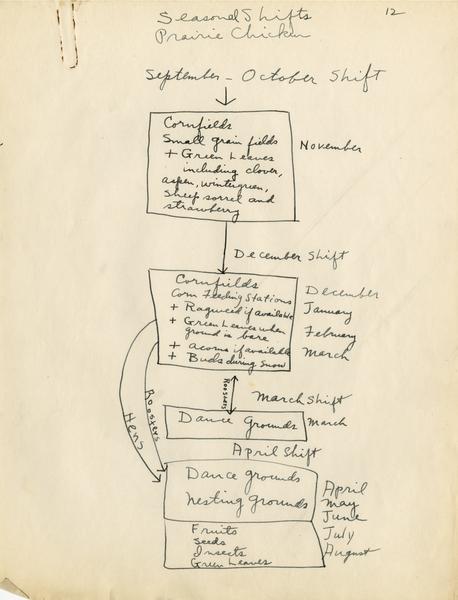 Seasonal Shifts
12
Prairie Chicken
September - October Shift
Cornfields
Small grain fields
+ Green Leaves
including clover,
aspen, wintergreen,
Sheep sorrel and
strawberry
November
December Shift
Cornfields
Corn Feeding Stations
+ Ragweed if available
+ Green Leaves when
ground is bare
+ acorns if available
+ Buds during snow
December
January
February
March
Roosters
March Shift
Dance Grounds
March
April Shift
Roosters
Hens
Dance grounds
Nesting grounds
Fruits
Seeds
Insects
Green Leaves
April
May
June
July
August